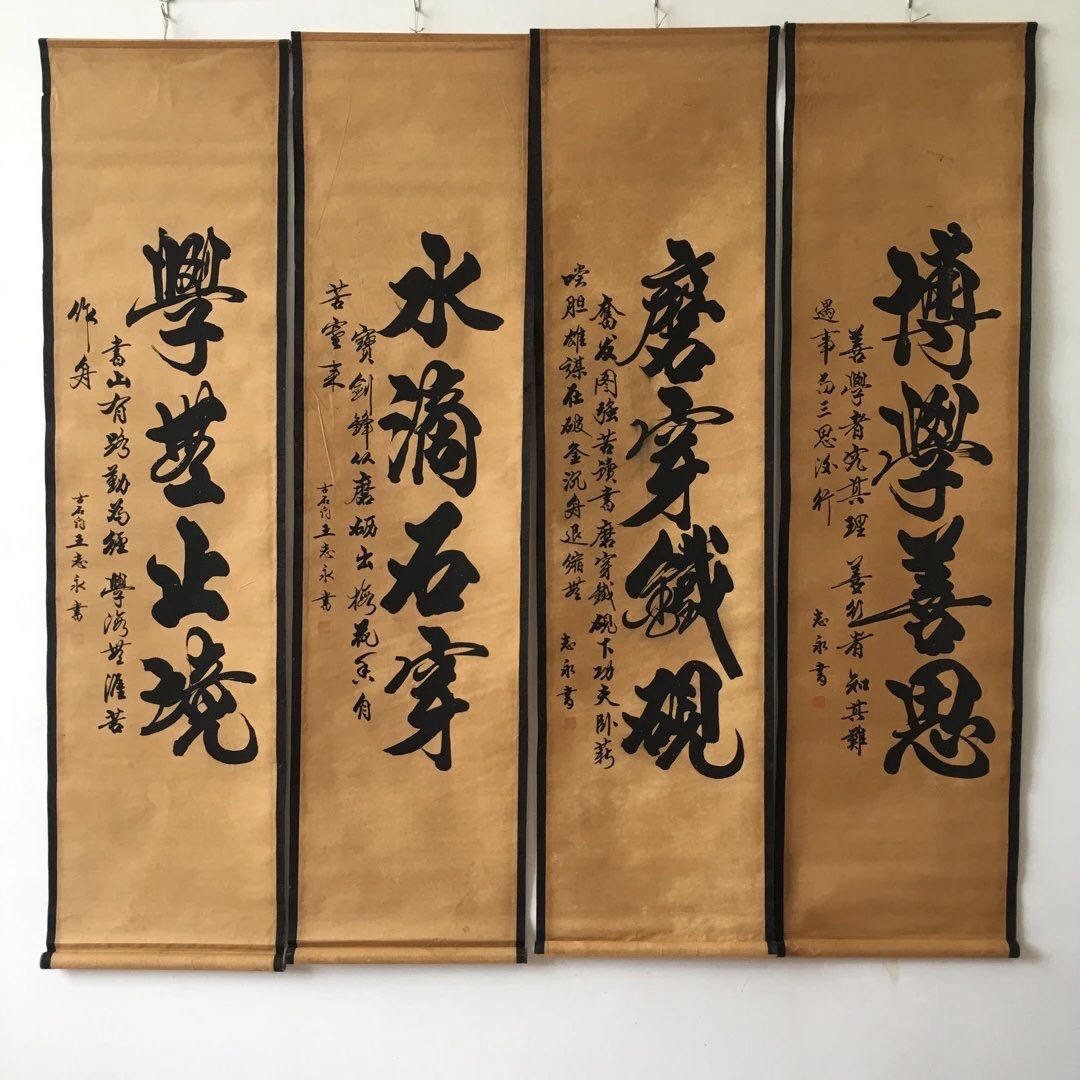 博學善思
善學者究其理 善行者知其難
遇事而三思後行
志永書
磨穿鐵硯
奮发图强苦讀書磨穿鐵硯下功夫卧薪
嚐胆雄謀在破釜沉舟退縮無
志永書
水滴石穿
寶劍鋒从磨砺出梅花香自
苦寒来
王志永書
學無止境
書山有路勤為徑 學海無涯苦
作舟
王志永書